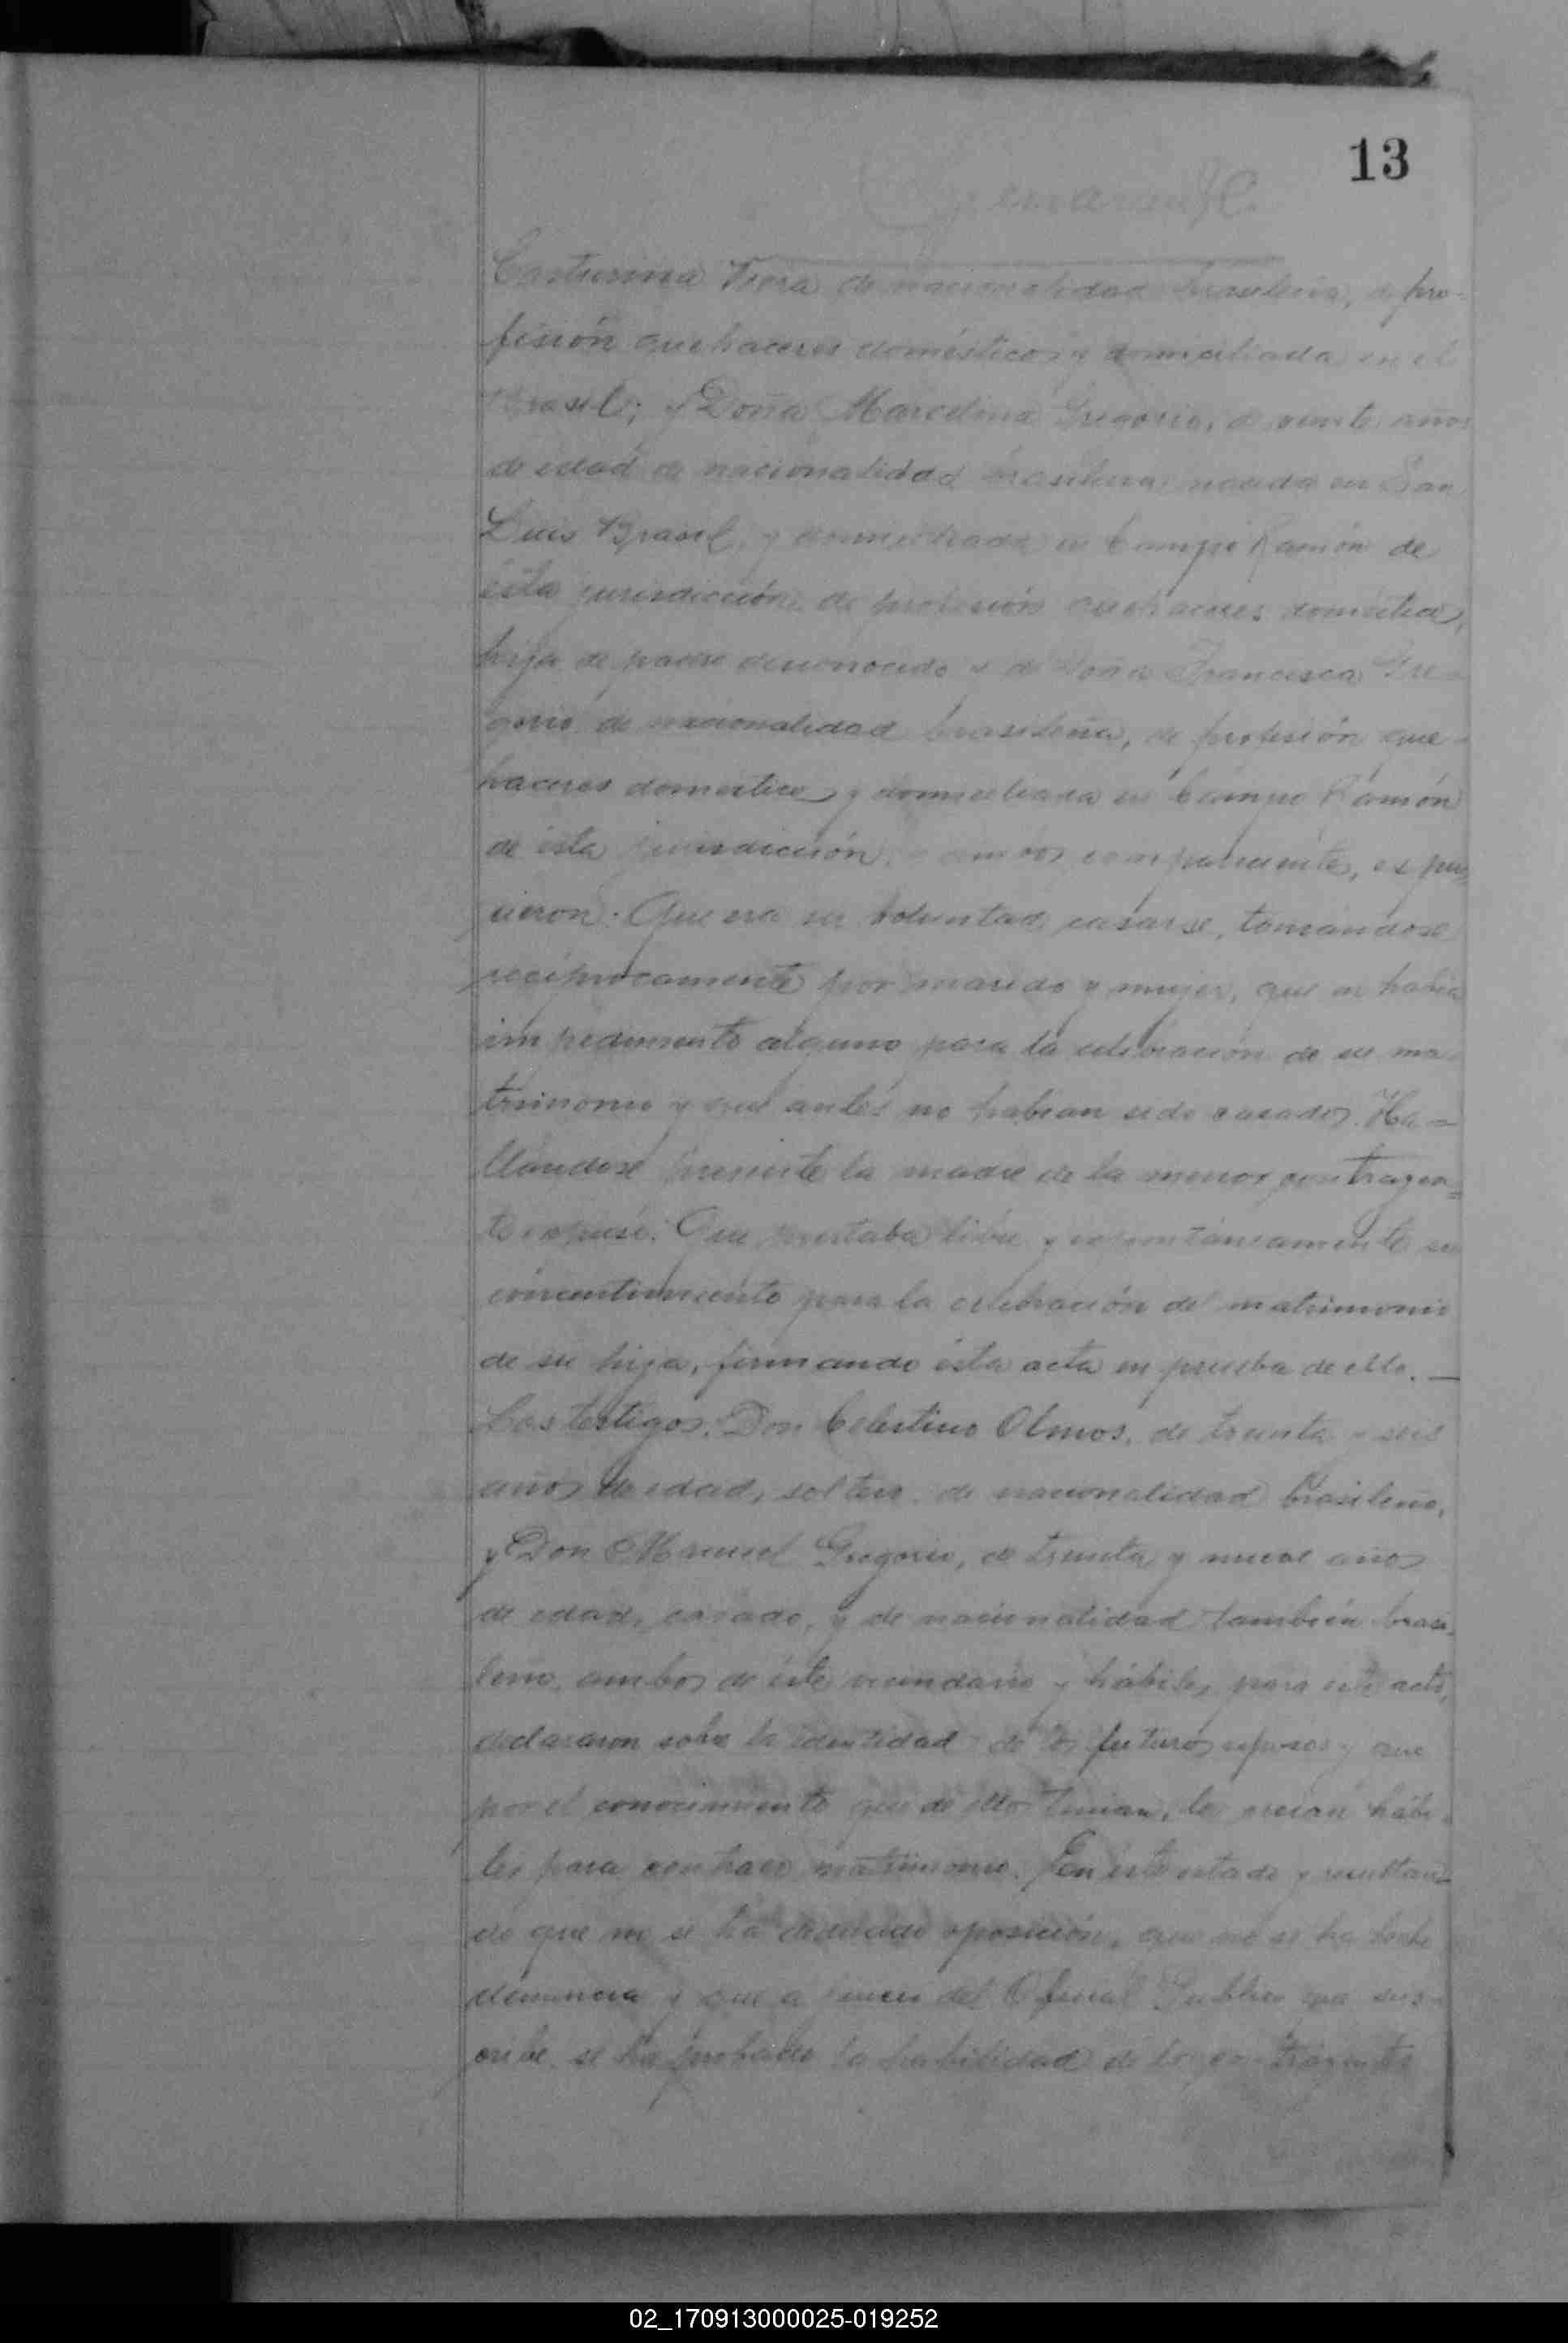 13
Viera de nacionalidad brasileña, de pro-
fesión quehaceres domésticos y domiciliada en el
Brasil; y Doña Marcelina Gregorio, de veinte años
de edad de nacionalidad brasilera nacida en San
Luis Brasil, y domiciliada en Campo Ramón de
ésta jurisdicción, de profesión quehaceres domésticos,
hija de padre desconocido y de Doña Francisca Gre-
gorio de nacionalidad brasileña, de profesión que-
haceres domésticos y domiciliada en Campo Ramón
de ésta jurisdicción, y ambos comparecientes, expu-
sieron: Que era su voluntad casarse, tomándose
recíprocamente por marido y mujer, que no había
impedimento alguno para la celebración de su ma-
trimonio y que antes no habían sido casados. Ha-
llándose presente la madre de la menor contrayen-
te expuso: Que prestaba libre y espontáneamente su
consentimiento para la celebración del matrimonio
de su hija, firmando ésta acta en prueba de ello. —
Los testigos: Don Celestino Olmos, de treinta y seis
años de edad, soltero, de nacionalidad brasileño,
y Don Manuel Gregorio, de treinta y nueve años
de edad, casado, y de nacionalidad también brasi-
leño, ambos de éste vecindario y hábiles para este acto,
declararon sobre la identidad de los futuros esposos y que
por el conocimiento que de ellos tenían, los creían hábi-
les para contraer matrimonio. En este estado y resultan-
do que no se ha deducido oposición, que no se ha hecho
denuncia y que a juicio del Oficial Publico que sus-
cribe se ha probado la habilidad de los contrayentes
02_170913000025-019252